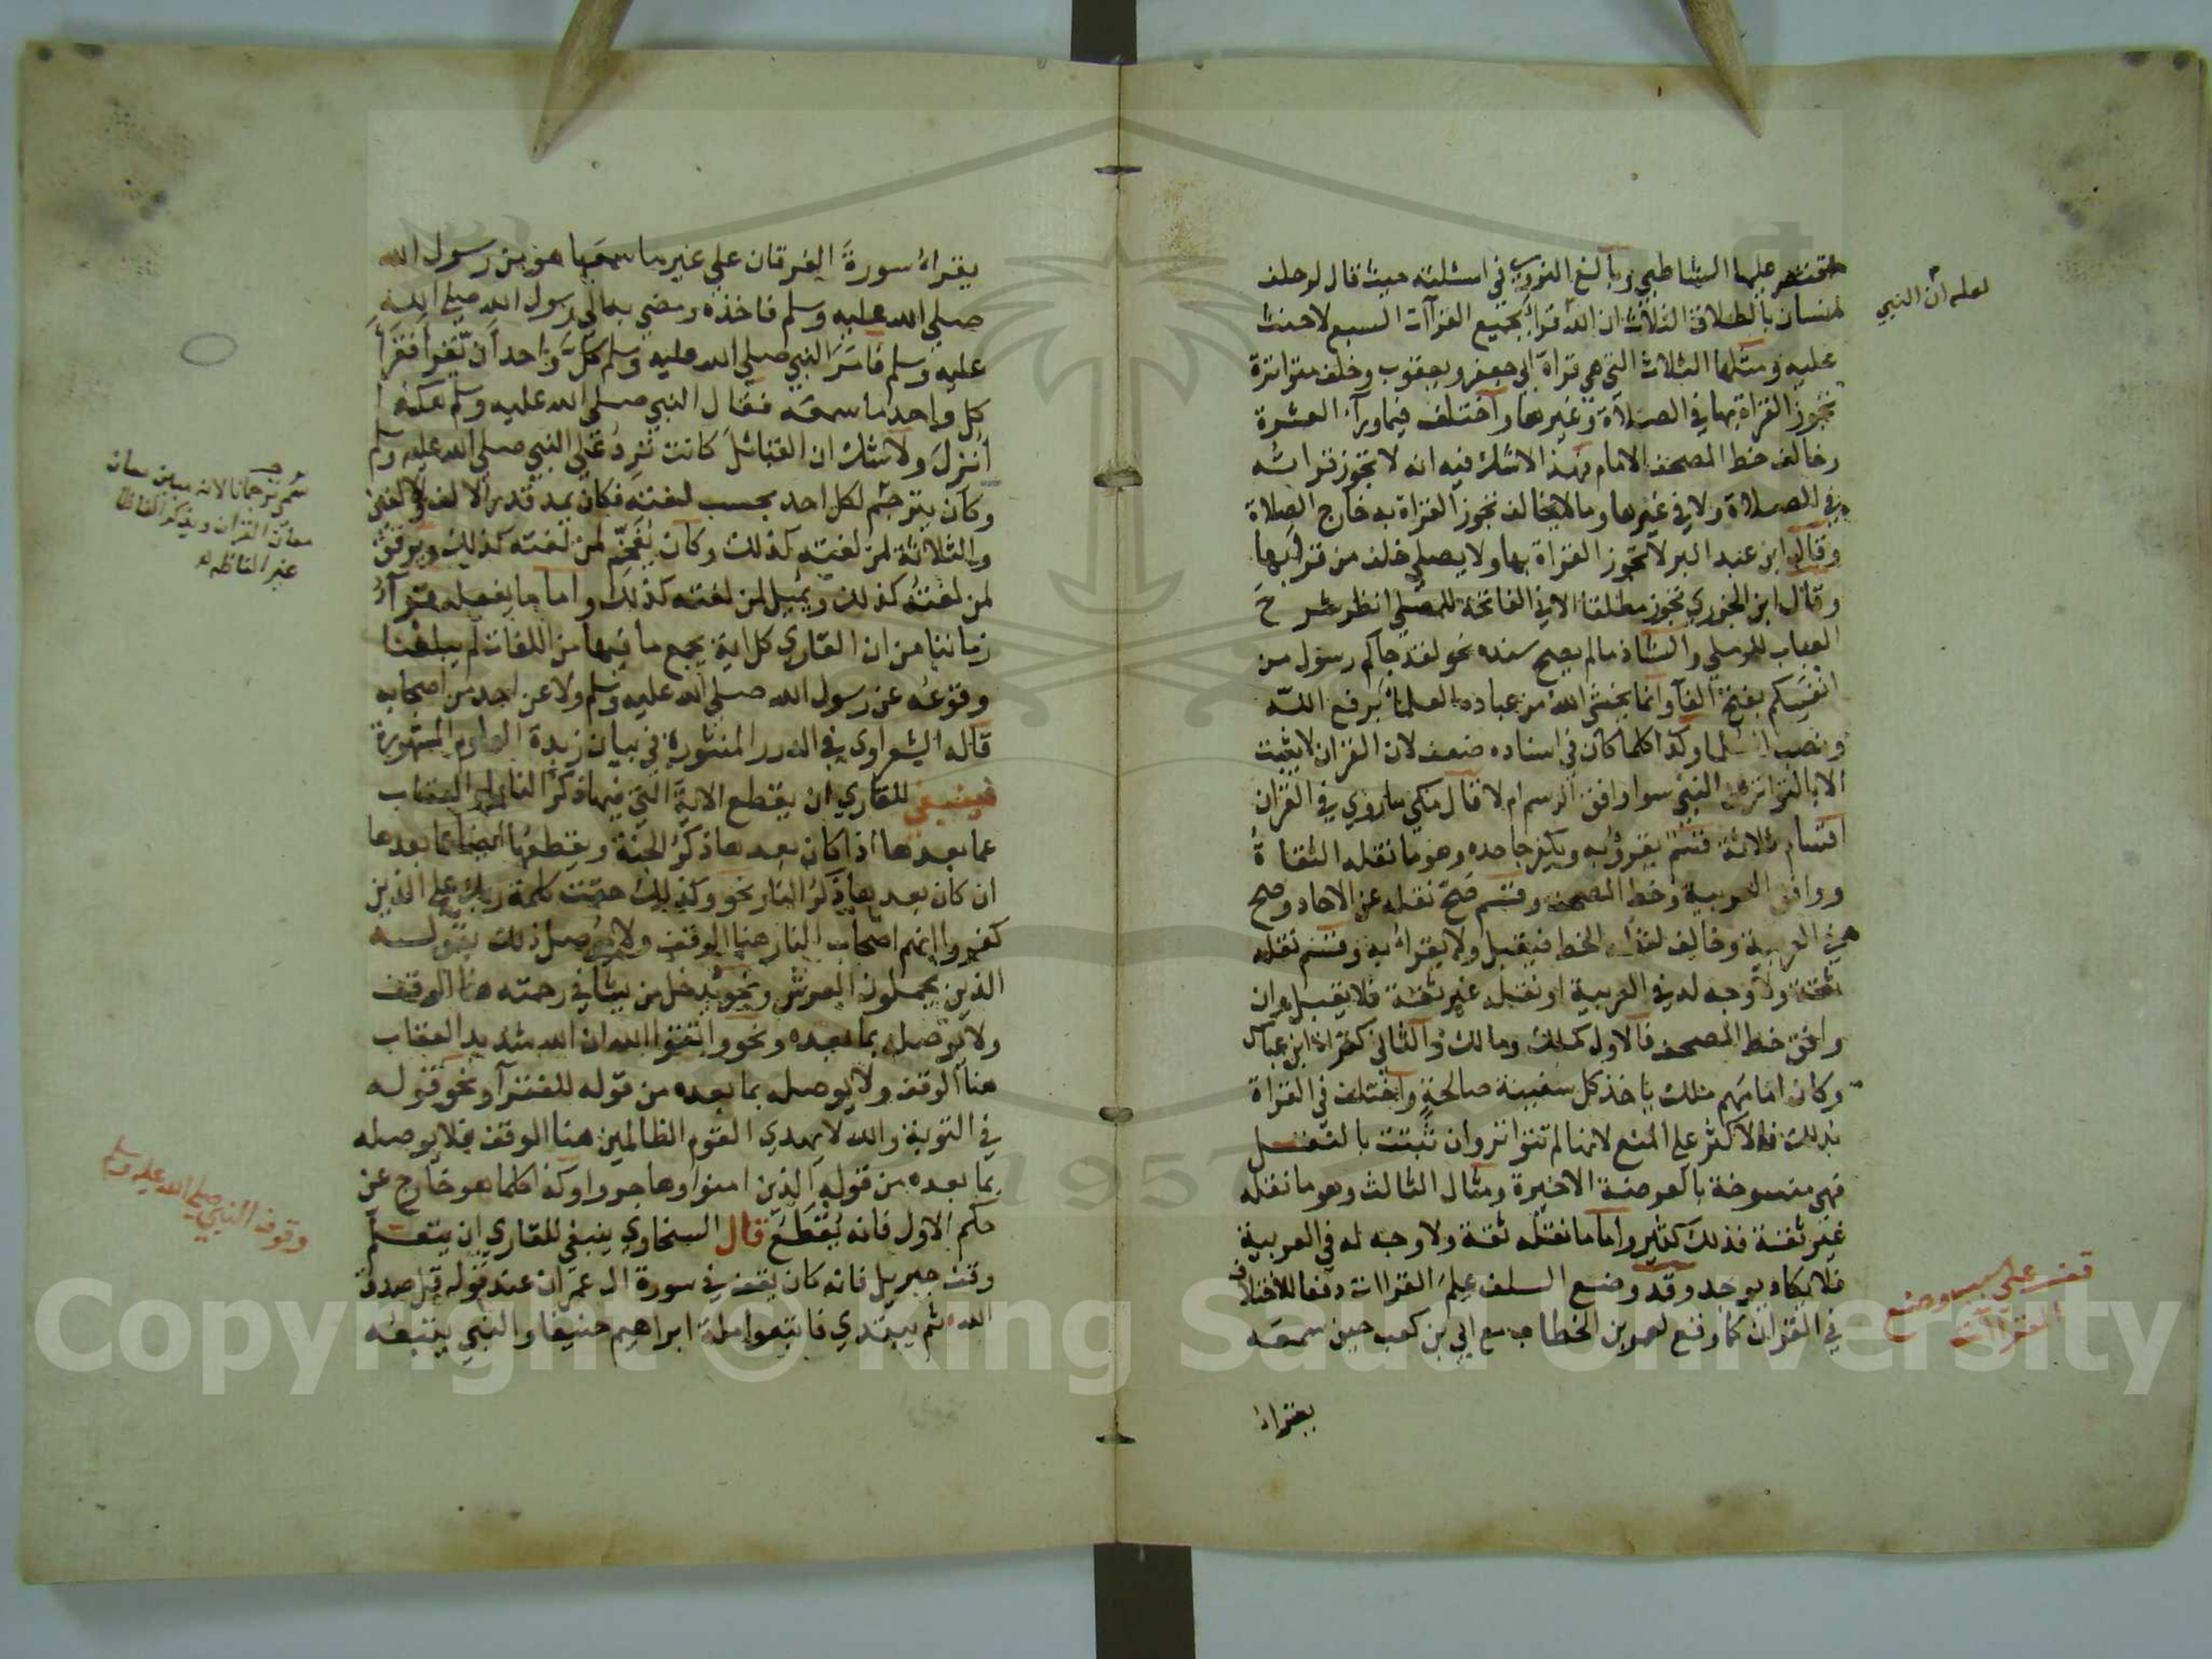 اقتصر عليها الشاطبي وبالغ النووي في اسئلته حيث قال لو حلف
انسان بالطلاق الثلاث ان الله قرأ بجميع القرآات السبع لا حنث
عليه ومثلها الثلاث التي هي قراة ابي جعفر ويعقوب وخلف متواترة
تجوز القراة بها في الصلاة وغيرها واختلف فيما وراء العشرة
وخالف خط المصحف الامام فهذا لاشك فيه انه لا تجوز قرائته
في الصلاة ولا في غيرها وما لا يخالف تجوز القراة به خارج الصلاة
وقال ابن عبد البر لا تجوز القراة بها ولا يصلي خلف من قرأ بها
وقال ابن الجزري تجوز مطلقا الا في الفاتحة للمصلي انظر شرح
العباب للرملي والشاذ مالم يصح سنده نحو لقد جاكم رسول من
انفسكم بفتح الفآ وانما يخشى الله من عباده العلما برفع الله
ونصب العلما وكذا كلما كان في اسناده ضعف لان القران لا يثبت
الا بالتواتر عن النبي سوا وافق الرسم ام لا قال مكي ماروي في القران
اقسام ثلاثة قسم يقرؤ به ويكفر جاحده وهو ما نقله الثقاة
ووافق العربية وخط المصحف وقسم صح نقله عن الاحاد وصح
في العربية وخالف لفظه الخط فيقبل ولا يقرا به وقسم نقله
ثقة ولا وجه له في العربية او نقله غير ثقة فلا يقبل وان
وافق خط المصحف فالاول كملك ومالك والثاني كقراة ابن عباس
وكان امامهم ملك ياخذ كل سفينة صالحة واختلف في القراة
بذلك فالاكثر علي المنع لانها لم تتواتر وان ثبتت بالنقل
فهي منسوخة بالعرضة الاخيرة ومثال الثالث وهو ما نقله
غير ثقة فذلك كثير واما ما نقله ثقة ولا وجه له في العربية
فلا يكاد يوجد وقد وضع السلف علم القراات دفعا للاختلاف
في القران كما وقع لعمر بن الخطاب مع ابي بن كعب حين سمعه
يقرا
لعله ان النبي
قف علي سبب وضع
القراآت
يقراء سورة الفرقان علي غير ما سمعها هو من رسول الله
صلي الله عليه وسلم فاخذه ومضي به الي رسول الله صلي الله
عليه وسلم فامر النبي صلي الله عليه وسلم كل واحد ان يقرأ فقرأ
كل واحد ما سمعه فقال النبي صلي الله عليه وسلم هكذا
أنزل ولاشك ان القبائل كانت ترد علي النبي صلي الله عليه وسلم
وكان يترجم لكل احد بحسب لغته فكان يمد قدر الالف والالفين
والثلاثة لمن لغته كذلك وكان يفخم لمن لغته كذلك ويرقق
لمن لغته كذلك ويميل لمن لغته كذلك واما ما يفعله قرآء
زماننا من ان القاري كل اية يجمع ما فيها من اللغات لم يبلغنا
وقوعه عن رسول الله صلي الله عليه وسلم ولا عن احد من اصحابه
قاله الشعراوي في الدرر المنثورة في بيان زبدة العلوم المشهورة
فينبغي للقاري ان يقطع الاية التي فيها ذكر النار او العقاب
عما بعدها اذا كان بعدها ذكر الجنة ويقطعها ايضا عما بعدها
ان كان بعدها ذكر النار نحو وكذلك حقت كلمة ربك علي الذين
كفروا انهم اصحاب النار هنا الوقف ولا يوصل ذلك بقوله
الذين يحملون العرش ونحو يدخل من يشا في رحمته هنا الوقف
ولا يوصله بما بعده ونحو واتقوا الله ان الله شديد العقاب
هنا الوقف ولا يوصله بما بعده من قوله للفقرآ ونحو قوله
في التوبة والله لا يهدي القوم الظالمين هنا الوقف فلا يوصله
بما بعده من قوله الذين امنوا وهاجروا وكذا كلما هو خارج عن
حكم الاول فانه يقطع قال السخاوي ينبغي للقاري ان يتعلم
وقف جبريل فانه كان يقف في سورة ال عمران عند قوله قل صدق
الله ثم يبتدي فاتبعوا ملة ابراهيم حنيفا والنبي يتبعه
سمي ترجمانا لانه
معاني القران
غير الفاظه
وقوف النبي صلي الله عليه وسلم
Copyright © King Saud University
1957